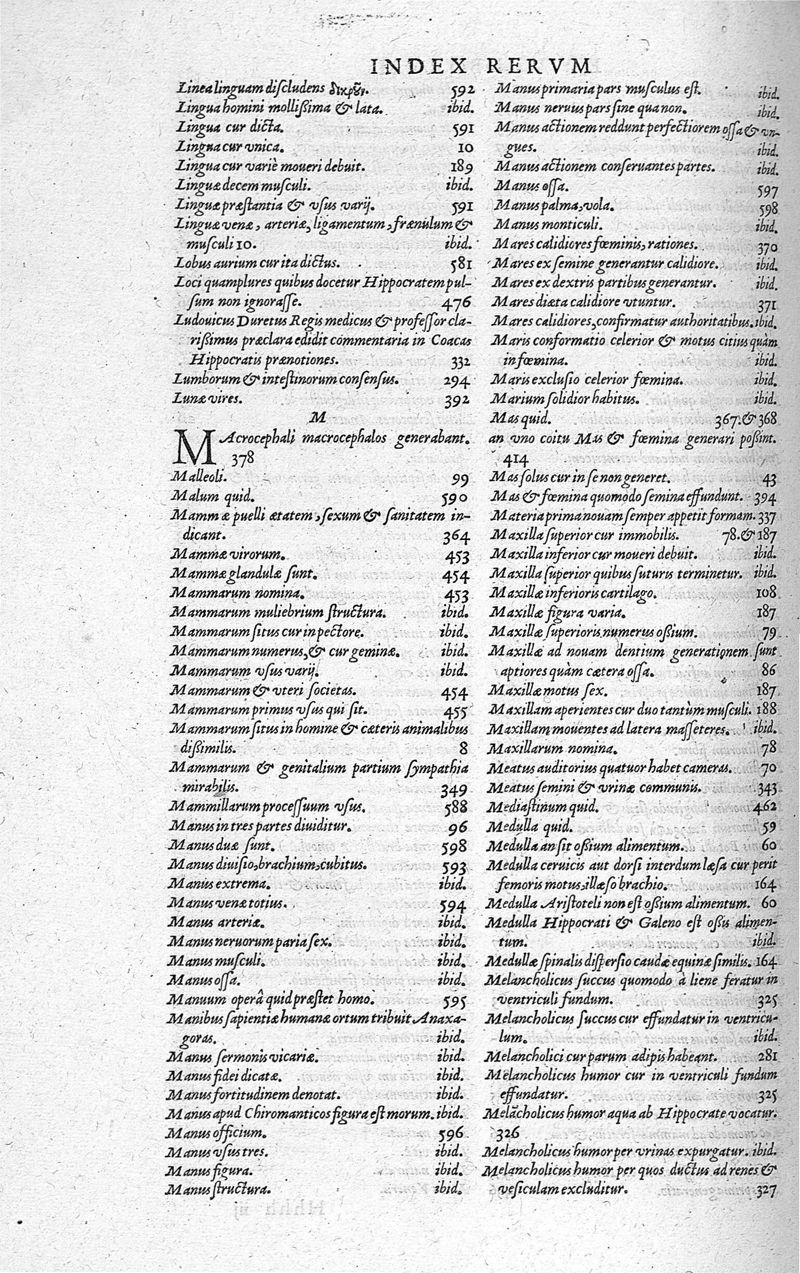 INDEX RERVM
Linea linguam discludens δικρȣ͂ν. 592
Lingua homini mollißima & lata. ibid.
Lingua cur dicta. 591
Lingua cur vnica. 10
Lingua cur variè moueri debuit. 189
Linguæ decem musculi. ibid.
Linguæ præstantia & vsus varij. 591
Linguæ venæ, arteriæ, ligamentum, frænulum &
musculi 10. ibid.
Lobus aurium cur ita dictus. 581
Loci quamplures quibus docetur Hippocratem pul-
sum non ignorasse. 476
Ludouicus Duretus Regis medicus & professor cla-
rißimus præclara edidit commentaria in Coacas
Hippocratis prænotiones. 332
Lumborum & intestinorum consensus. 294
Lunæ vires. 392
M
MAcrocephali macrocephalos generabant.
378
Malleoli. 99
Malum quid. 590
Mammæ puelli ætatem, sexum & sanitatem in-
dicant. 364
Mammæ virorum. 453
Mammæ glandulæ sunt. 454
Mammarum nomina. 453
Mammarum muliebrium structura. ibid.
Mammarum situs cur in pectore. ibid.
Mammarum numerus, & cur geminæ. ibid.
Mammarum vsus varij. ibid.
Mammarum & vteri societas. 454
Mammarum primus vsus qui sit. 455
Mammarum situs in homine & cæteris animalibus
dißimilis. 8
Mammarum & genitalium partium sympathia
mirabilis. 349
Mammillarum processuum vsus. 588
Manus in tres partes diuiditur. 96
Manus duæ sunt. 598
Manus diuisio, brachium, cubitus. 593
Manus extrema. ibid.
Manus venæ totius. 594
Manus arteriæ. ibid.
Manus neruorum paria sex. ibid.
Manus musculi. ibid.
Manus ossa. ibid.
Manuum operâ quid præstet homo. 595
Manibus sapientiæ humanæ ortum tribuit Anaxa-
goras. ibid.
Manus sermonis vicariæ. ibid.
Manus fidei dicatæ. ibid.
Manus fortitudinem denotat. ibid.
Manus apud Chiromanticos figura est morum. ibid.
Manus officium. 596
Manus vsus tres. ibid.
Manus figura. ibid.
Manus structura. ibid.
Manus primaria pars musculus est. ibid.
Manus neruius pars sine qua non. ibid.
Manus actionem reddunt perfectiorem ossa & vn-
gues. ibid.
Manus actionem conseruantes partes. ibid.
Manus ossa. 597
Manus palma, vola. 598
Manus monticuli. ibid.
Mares calidiores fœminis, rationes. 370
Mares ex semine generantur calidiore. ibid.
Mares ex dextris partibus generantur. ibid.
Mares diæta calidiore vtuntur. 371
Mares calidiores, confirmatur authoritatibus. ibid.
Maris conformatio celerior & motus citius quàm
in fœmina. ibid.
Maris exclusio celerior fœmina. ibid.
Marium solidior habitus. ibid.
Mas quid. 367. & 368
an vno coitu Mas & fœmina generari poßint.
414
Mas solus cur in se non generet. 43
Mas & fœmina quomodo semina effundunt. 394
Materia prima nouam semper appetit formam. 337
Maxilla superior cur immobilis. 78. & 187
Maxilla inferior cur moueri debuit. ibid.
Maxilla superior quibus suturis terminetur. ibid.
Maxillæ inferioris cartilago. 108
Maxillæ figura varia. 187
Maxillæ superioris numerus oßium. 79
Maxillæ ad nouam dentium generationem sunt
aptiores quàm cætera ossa. 86
Maxillæ motus sex. 187
Maxillam aperientes cur duo tantùm musculi. 188
Maxillam mouentes ad latera masseteres. ibid.
Maxillarum nomina. 78
Meatus auditorius quatuor habet cameras. 70
Meatus semini & vrinæ communis. 343
Mediastinum quid. 462
Medulla quid. 59
Medulla an sit oßium alimentum. 60
Medulla ceruicis aut dorsi interdum læsa cur perit
femoris motus, illæso brachio. 164
Medulla Aristoteli non est oßium alimentum. 60
Medulla Hippocrati & Galeno est oßis alimen-
tum. ibid.
Medullæ spinalis dispersio caudæ equinæ similis. 164
Melancholicus succus quomodo à liene feratur in
ventriculi fundum. 325
Melancholicus succus cur effundatur in ventricu-
lum. ibid.
Melancholici cur parum adipis habeant. 281
Melancholicus humor cur in ventriculi fundum
effundatur. 325
Melācholicus humor aqua ab Hippocrate vocatur.
326
Melancholicus humor per vrinas expurgatur. ibid.
Melancholicus humor per quos ductus ad renes &
vesiculam excluditur. 327